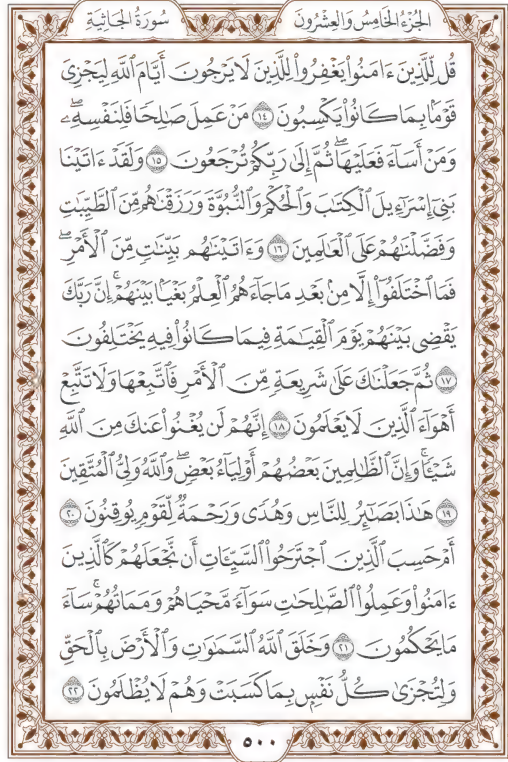 سُورَةُ الجَاثِيَةِ
الجُزْءُ الخَامِسُ وَالعِشْرُونَ
قُل لِّلَّذِينَ ءَامَنُوا۟ يَغْفِرُوا۟ لِلَّذِينَ لَا يَرْجُونَ أَيَّامَ ٱللَّهِ لِيَجْزِىَ
قَوْمًۢا بِمَا كَانُوا۟ يَكْسِبُونَ ١٤ مَنْ عَمِلَ صَـٰلِحًا فَلِنَفْسِهِۦ ۖ
وَمَنْ أَسَآءَ فَعَلَيْهَا ۖ ثُمَّ إِلَىٰ رَبِّكُمْ تُرْجَعُونَ ١٥ وَلَقَدْ ءَاتَيْنَا
بَنِىٓ إِسْرَٰٓءِيلَ ٱلْكِتَـٰبَ وَٱلْحُكْمَ وَٱلنُّبُوَّةَ وَرَزَقْنَـٰهُم مِّنَ ٱلطَّيِّبَـٰتِ
وَفَضَّلْنَـٰهُمْ عَلَى ٱلْعَـٰلَمِينَ ١٦ وَءَاتَيْنَـٰهُم بَيِّنَـٰتٍ مِّنَ ٱلْأَمْرِ ۖ
فَمَا ٱخْتَلَفُوٓا۟ إِلَّا مِنۢ بَعْدِ مَا جَآءَهُمُ ٱلْعِلْمُ بَغْيًۢا بَيْنَهُمْ ۚ إِنَّ رَبَّكَ
يَقْضِى بَيْنَهُمْ يَوْمَ ٱلْقِيَـٰمَةِ فِيمَا كَانُوا۟ فِيهِ يَخْتَلِفُونَ
١٧ ثُمَّ جَعَلْنَـٰكَ عَلَىٰ شَرِيعَةٍ مِّنَ ٱلْأَمْرِ فَٱتَّبِعْهَا وَلَا تَتَّبِعْ
أَهْوَآءَ ٱلَّذِينَ لَا يَعْلَمُونَ ١٨ إِنَّهُمْ لَن يُغْنُوا۟ عَنكَ مِنَ ٱللَّهِ
شَيْـًٔا ۚ وَإِنَّ ٱلظَّـٰلِمِينَ بَعْضُهُمْ أَوْلِيَآءُ بَعْضٍ ۖ وَٱللَّهُ وَلِىُّ ٱلْمُتَّقِينَ
١٩ هَـٰذَا بَصَـٰٓئِرُ لِلنَّاسِ وَهُدًى وَرَحْمَةٌ لِّقَوْمٍ يُوقِنُونَ ٢٠
أَمْ حَسِبَ ٱلَّذِينَ ٱجْتَرَحُوا۟ ٱلسَّيِّـَٔاتِ أَن نَّجْعَلَهُمْ كَٱلَّذِينَ
ءَامَنُوا۟ وَعَمِلُوا۟ ٱلصَّـٰلِحَـٰتِ سَوَآءً مَّحْيَاهُمْ وَمَمَاتُهُمْ ۚ سَآءَ
مَا يَحْكُمُونَ ٢١ وَخَلَقَ ٱللَّهُ ٱلسَّمَـٰوَٰتِ وَٱلْأَرْضَ بِٱلْحَقِّ
وَلِتُجْزَىٰ كُلُّ نَفْسٍۭ بِمَا كَسَبَتْ وَهُمْ لَا يُظْلَمُونَ ٢٢
٥٠٠